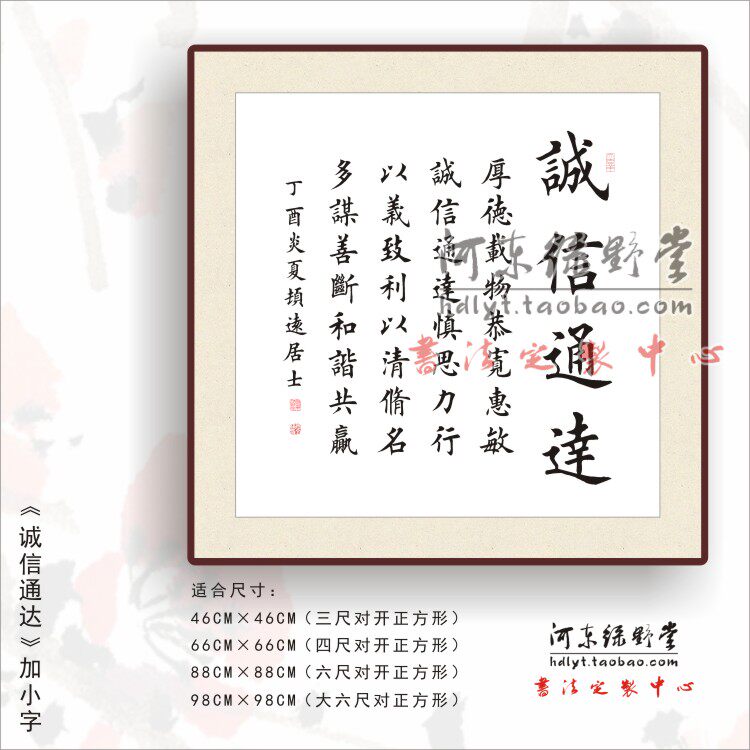 誠信通達
厚德載物恭寬惠敏
誠信通達慎思力行
以義致利以清脩名
多謀善斷和諧共贏
丁酉炎夏頃遠居士
河东绿野堂
hdlyt.taobao.com
書法定製中心
《诚信通达》加小字
适合尺寸:
46CM×46CM(三尺对开正方形)
66CM×66CM(四尺对开正方形)
88CM×88CM(六尺对开正方形)
98CM×98CM(大六尺对开正方形)
河东绿野堂
hdlyt.taobao.com
書法定製中心